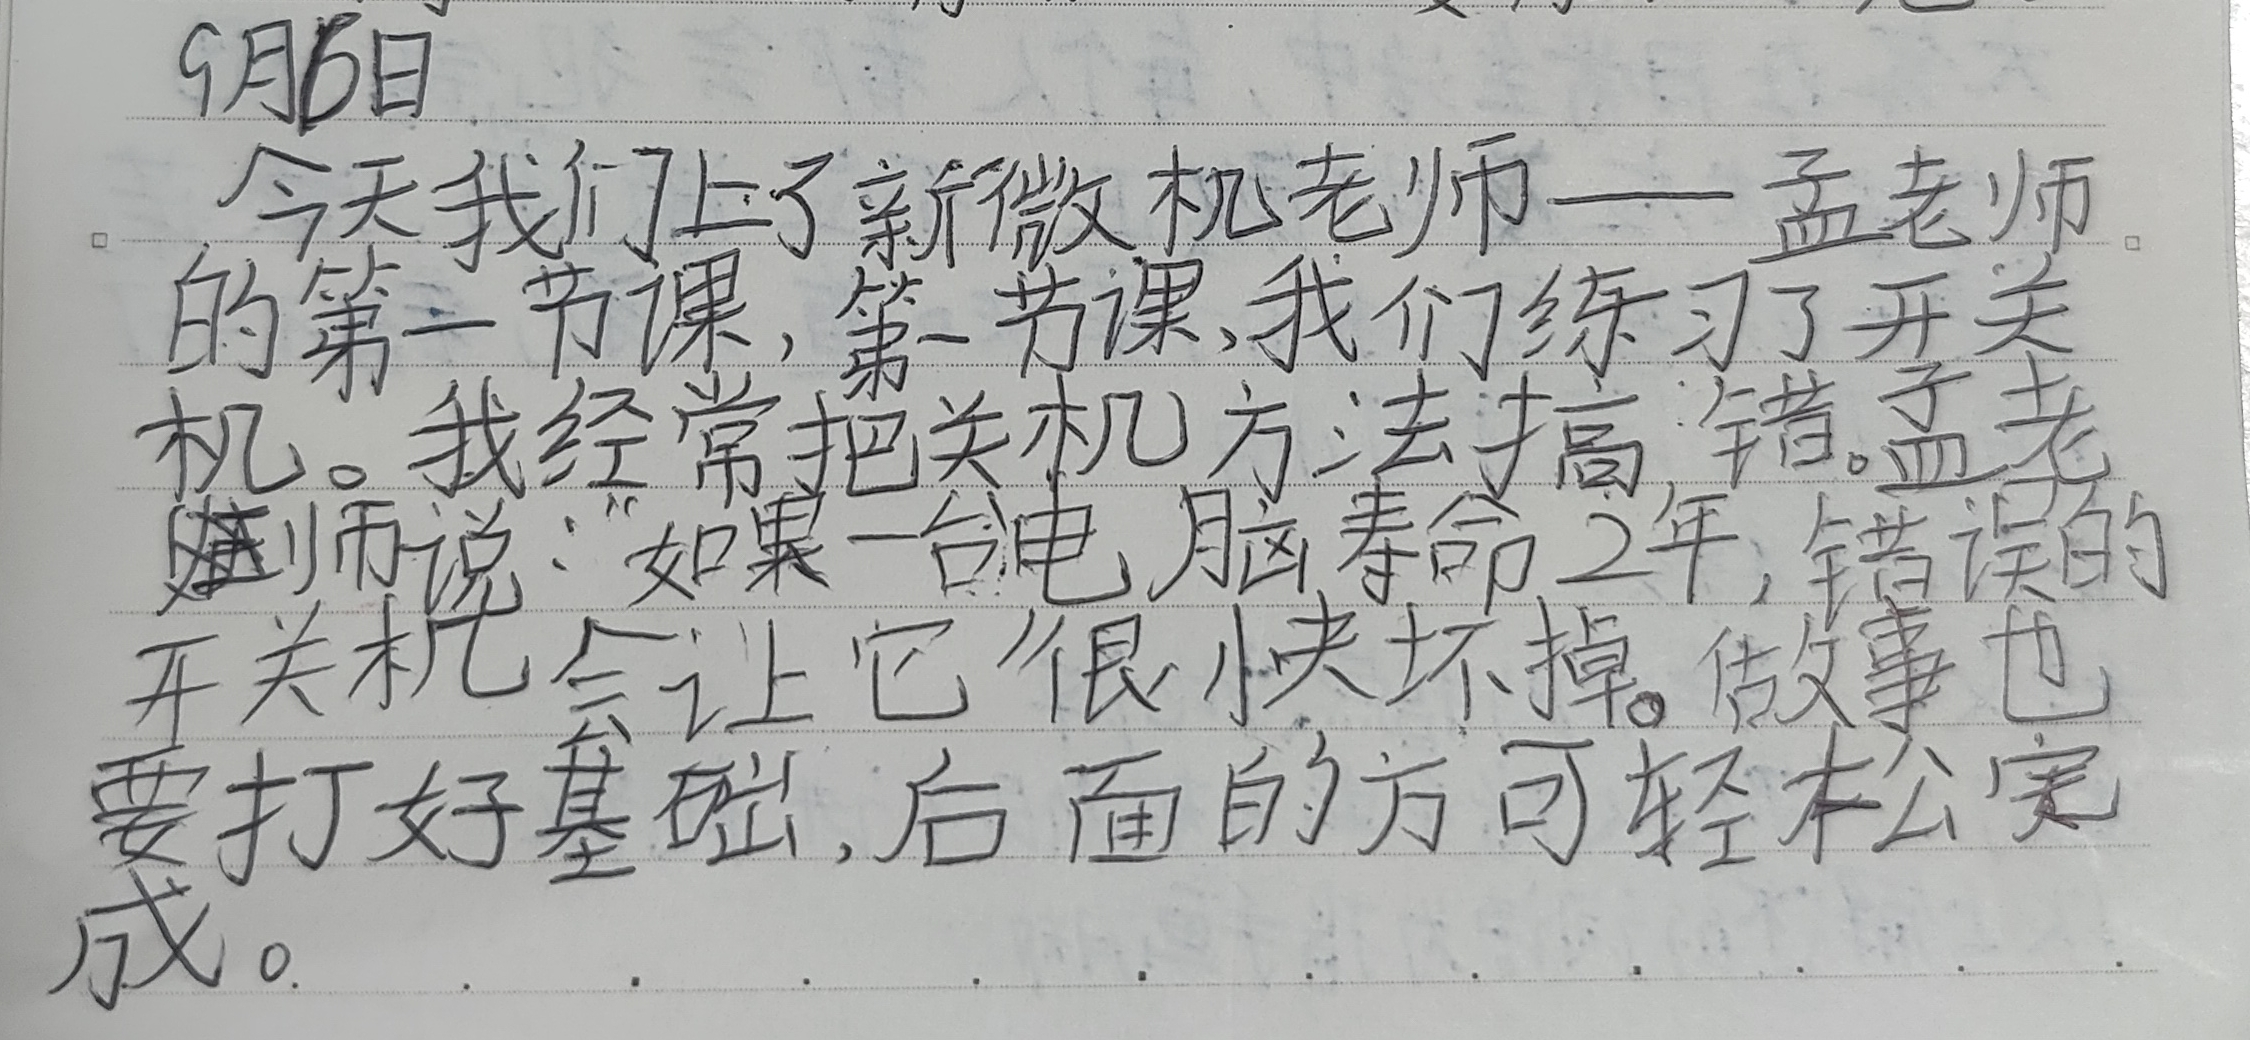 9月6日
今天我们上了新微机老师——孟老师
的第一节课,第一节课、我们练习了开关
机。我经常把关机方法搞错。孟老
师说:“如果一台电脑寿命2年,错误的
开关机会让它”很快坏掉。做事也
要打好基础,后面的方可轻松完
成。